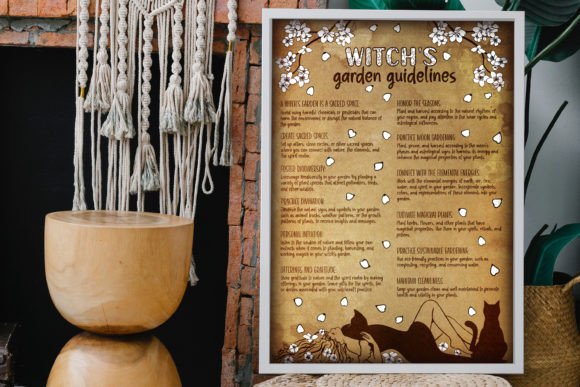 WITCH'S
garden guidelines
A WITCH'S GARDEN IS A SACRED SPACE
Avoid using harmful chemicals or pesticides that can
harm the environment or disrupt the natural balance of
the garden.
CREATE SACRED SPACES
Set up altars, stone circles, or other sacred spaces
where you can connect with nature, the elements, and
the spirit realm.
FOSTER BIODIVERSITY
Encourage biodiversity in your garden by planting a
variety of plant species that attract pollinators, birds,
and other wildlife.
PRACTICE DIVINATION
Observe the natural signs and symbols in your garden,
such as animal tracks, weather patterns, or the growth
patterns of plants, to receive insights and messages.
PERSONAL INTUITION
Listen to the wisdom of nature and follow your own
instincts when it comes to planting, harvesting, and
working magick in your witch's garden.
OFFERINGS AND GRATITUDE
Show gratitude to nature and the spirit realm by making
offerings in your garden. Leave gifts for the spirits, fae
or deities associated with your witchcraft practice.
HONOR THE SEASONS
Plant and harvest according to the natural rhythms of
your region, and pay attention to the lunar cycles and
astrological influences.
PRACTICE MOON GARDENING
Plant, prune, and harvest according to the moon's
phases and astrological signs to harness its energy and
enhance the magical properties of your plants.
CONNECT WITH THE ELEMENTAL ENERGIES
Work with the elemental energies of earth, air, fire,
water, and spirit in your garden. Incorporate symbols,
colors, and representations of these elements into your
garden.
CULTIVATE MAGICAL PLANTS
Plant herbs, flowers, and other plants that have
magical properties. Use them in your spells, rituals, and
potions.
PRACTICE SUSTAINABLE GARDENING
Use eco-friendly practices in your garden, such as
composting, recycling, and conserving water.
MAINTAIN CLEANLINESS
Keep your garden clean and well maintained to promote
health and vitality in your plants.